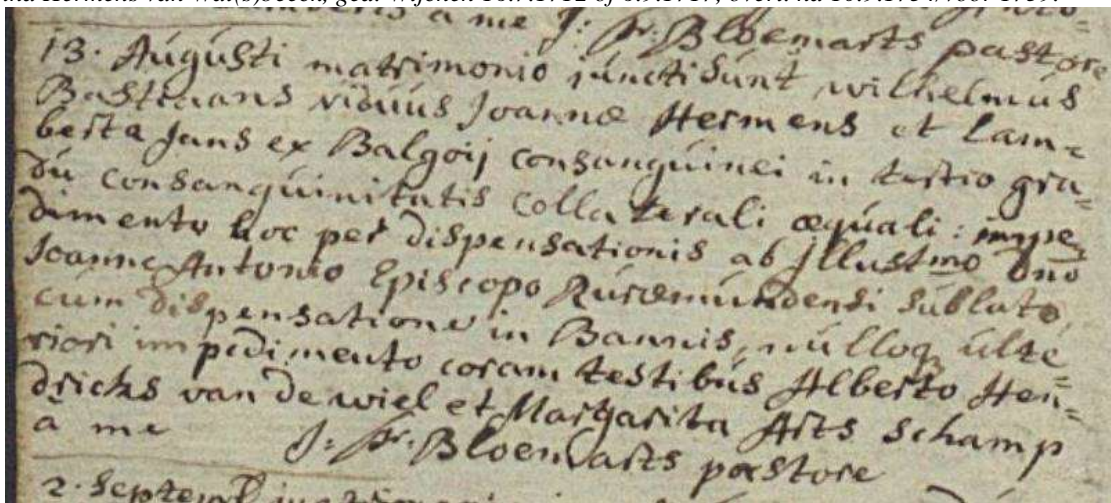 a me J: Fr: Bloemarts pastore
13. Augusti matrimonio iuncti sunt wilhelmus
Bastiaans viduus Joannæ Hermens et Lam=
berta Jans ex Balgoij consanguinei in tertio gra=
du consanguinitatis collaterali æquali: impe=
dimento hoc per dispensationis ab Illustmo Dno
Joanne Antonio Episcopo Ruræmundensi sublato,
cum dispensatione in Bannis, nulloq ulte=
riori impedimento coram testibus Alberto Hen=
dricks van de wiel et Margarita Arts Schamp
à me J: Fr: Bloemarts pastore
2. Septemb